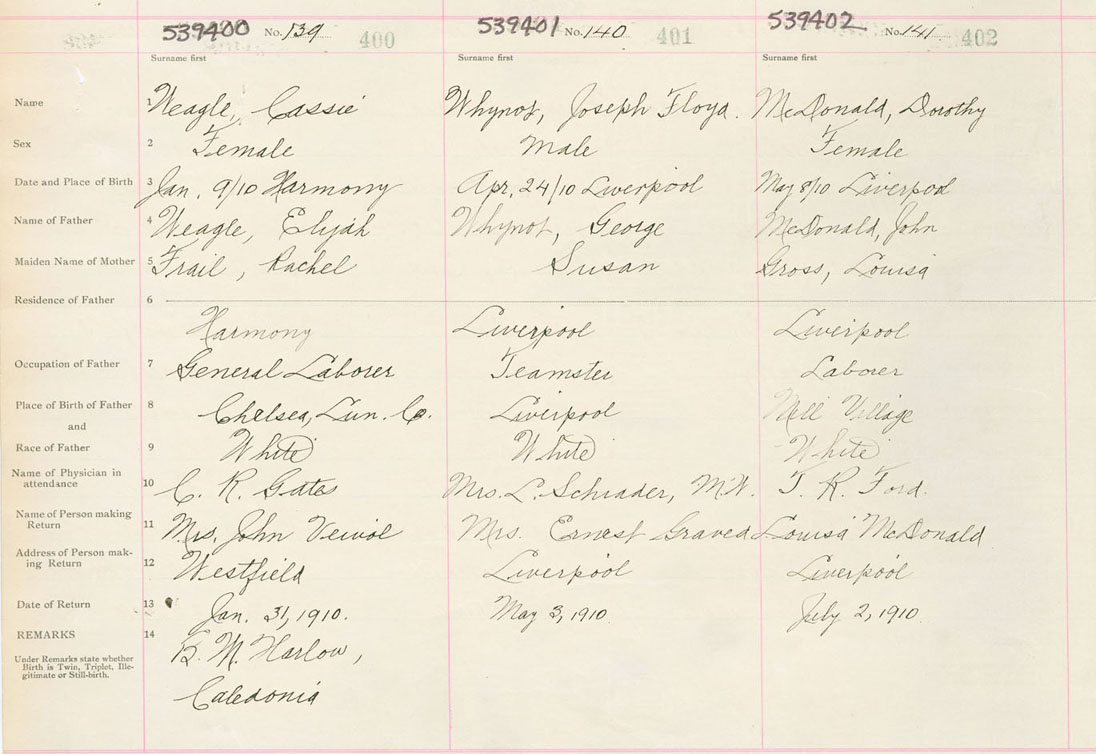 539400 No. 139 400 539401 No. 140 401 539402 No. 141 402
Surname first Surname first Surname first
Name 1 Veagle, Cassie Whynot, Joseph Floyd. McDonald, Dorothy
Sex 2 Female Male Female
Date and Place of Birth 3 Jan. 9/10 Harmony Apr. 24/10 Liverpool May 8/10 Liverpool
Name of Father 4 Veagle, Elijah Whynot, George McDonald, John
Maiden Name of Mother 5 Frail, Rachel Susan Gross, Louisa
Residence of Father 6
Harmony Liverpool Liverpool
Occupation of Father 7 General Laborer Teamster Laborer
Place of Birth of Father 8 Chelsea, Lun. Co. Liverpool Mill Village
and
Race of Father 9 White White White
Name of Physician in
attendance 10 C. R. Gates Mrs. L. Schrader, M.W. T. R. Ford.
Name of Person making
Return 11 Mrs. John Mrs. Ernest Graved Louisa McDonald
Address of Person mak-
ing Return 12 Westfield Liverpool Liverpool
Date of Return 13 Jan. 31, 1910. May 3, 1910. July 2, 1910.
REMARKS 14 B. M. Harlow,
Under Remarks state whether
Birth is Twin, Triplet, Ille-
gitimate or Still-birth.
Caledonia